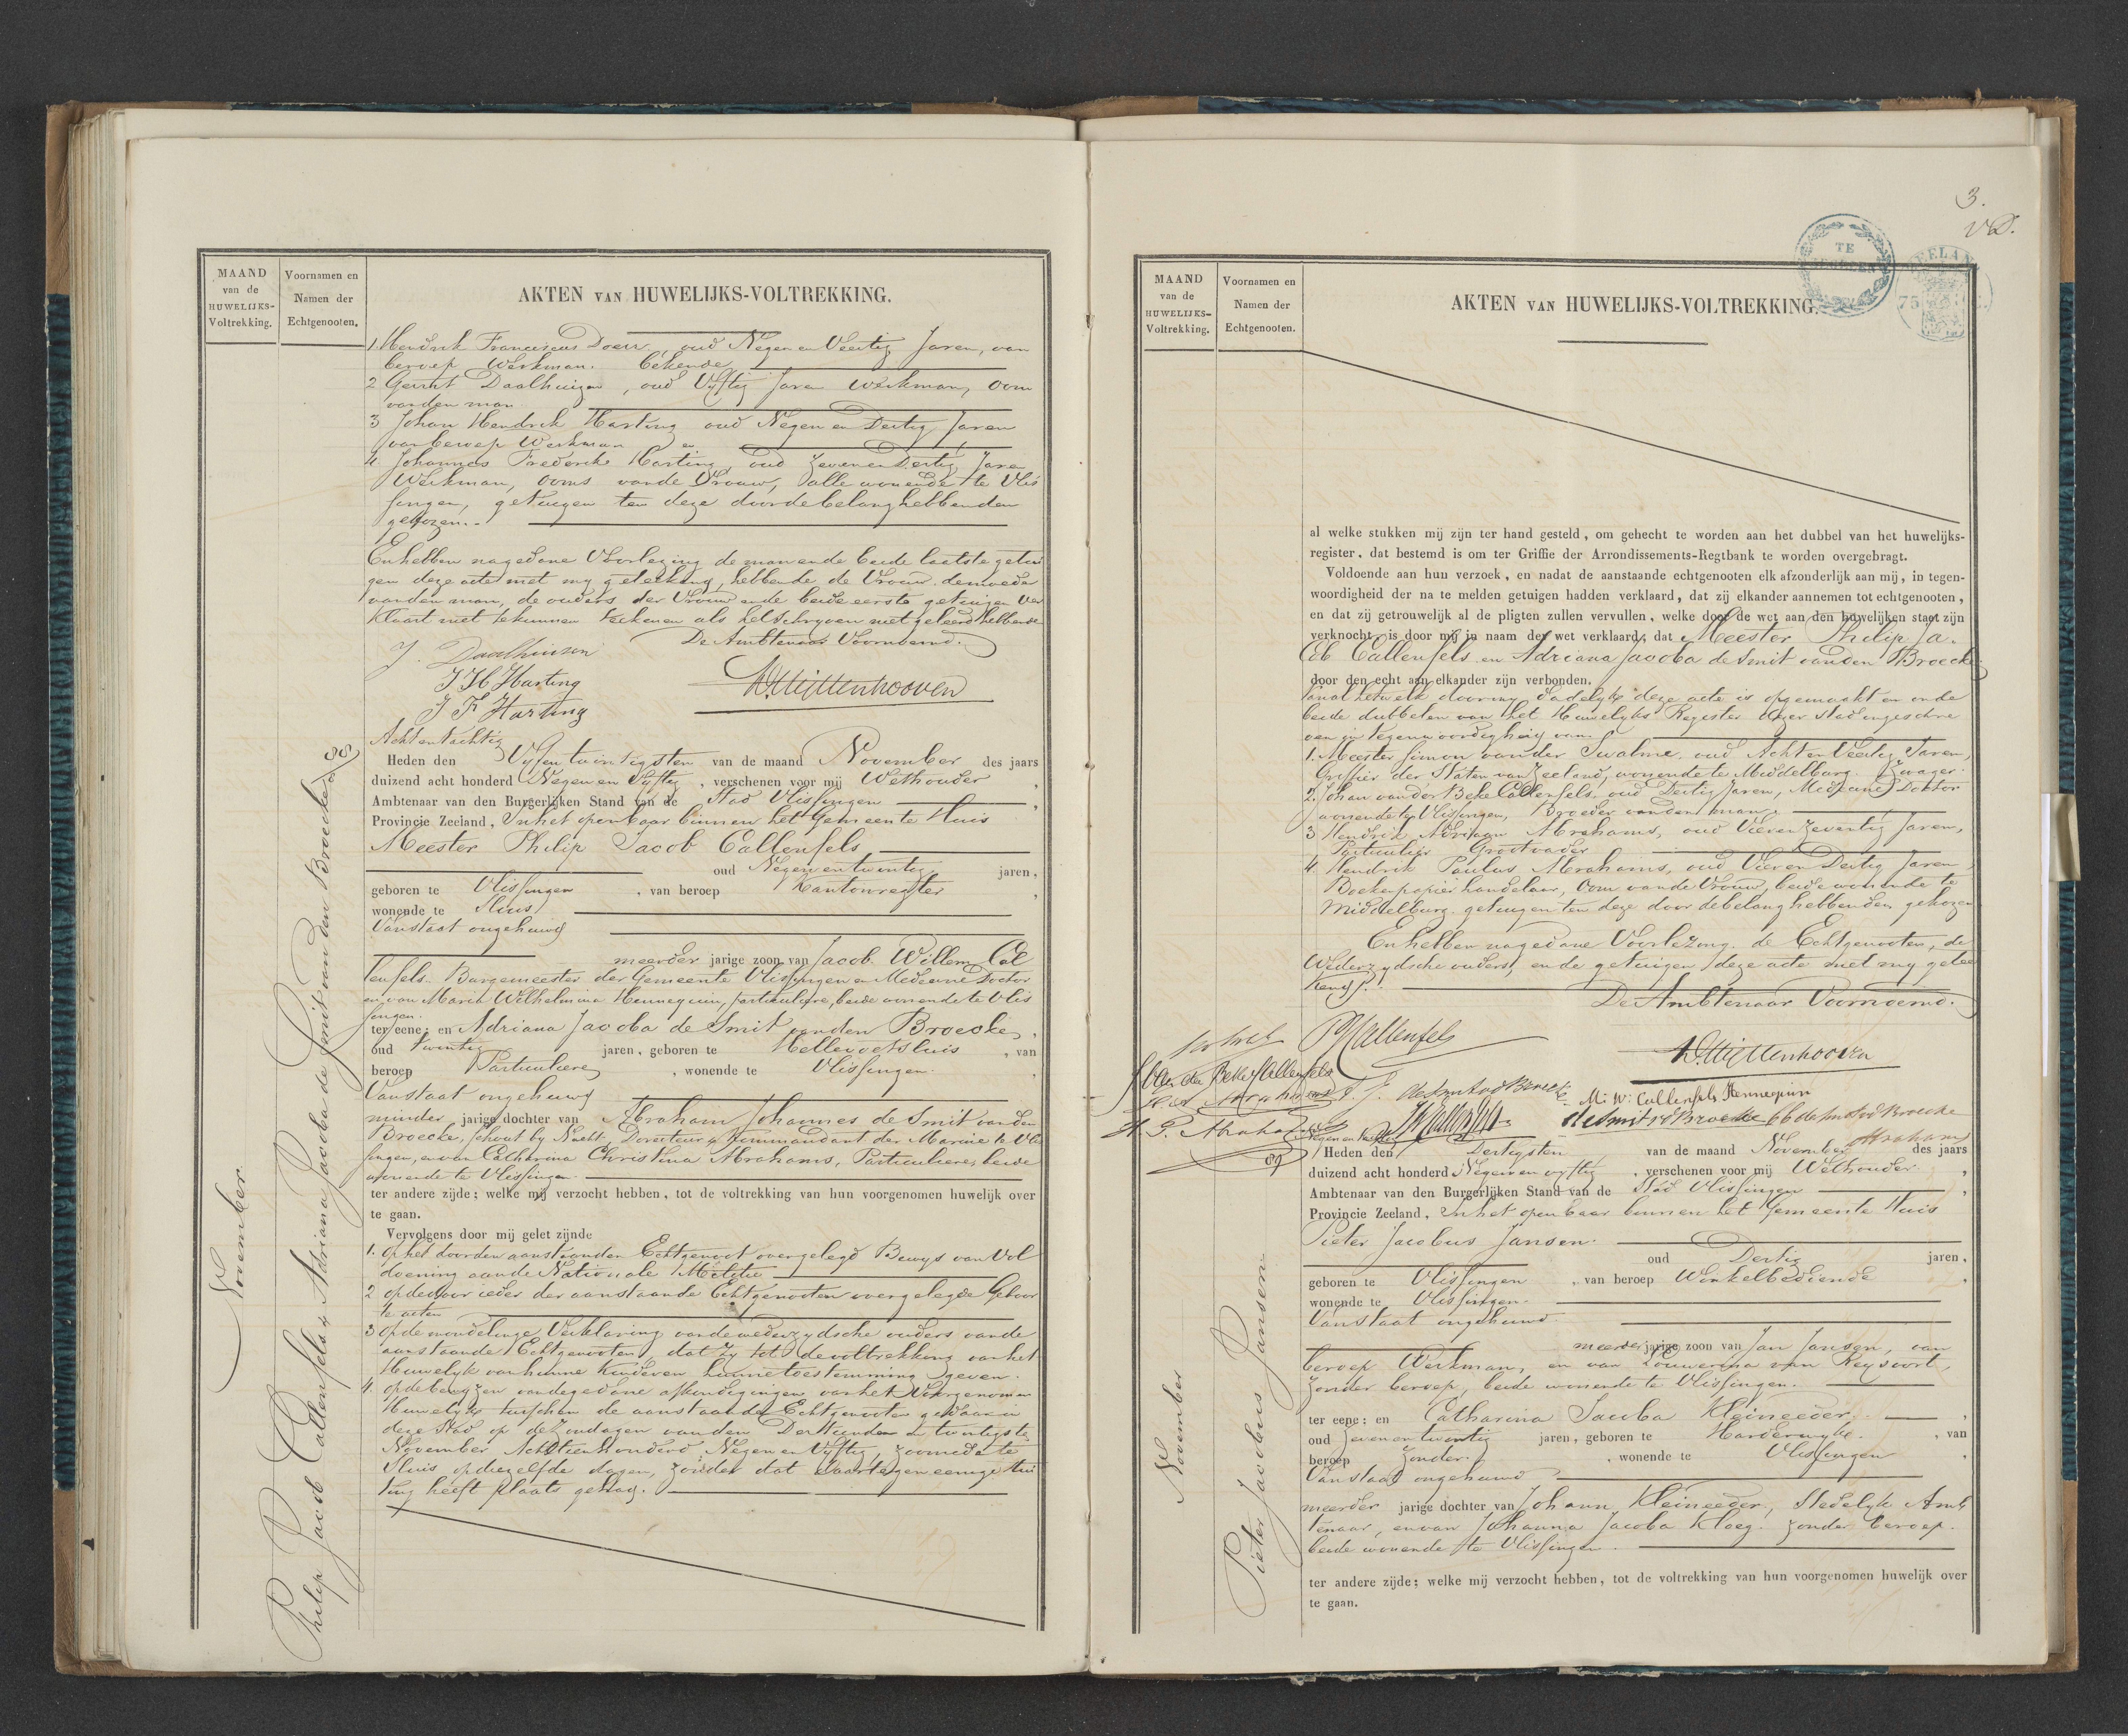 MAAND
van de
HUWELIJKS-
Voltrekking.
Voornamen en
Namen der
Echtgenooten.
AKTEN VAN HUWELIJKS-VOLTREKKING.
1. Hendrik Franciscus Doeu, oud Negen en Veertig Jaren, van
beroep Werkman. bekende
2 Gerrit Daalhuizen, oud Vyftig Jaren werkman, Oom
van den man
3 Johan Hendrik Harting oud Negen en Dertig Jaren
van beroep Werkman en
4. Johannes Frederik Harting oud Zeven en Dertig Jaren
Werkman, Ooms van de Vrouw, alle wonende te Vlis
singen, getuigen ten deze door de belanghebbenden
gekozen.
En hebben na gedane Voorlezing de man en de beide laatste getui
gen deze acte met my geteekend, hebbende de Vrouw de moeder
van den man, de ouders der Vrouw en de beide eerste getuigen Ver
klaart niet te kunnen teekenen als het schryven niet geleerd hebbende
De Ambtenaar Voornoemd.
J. Daalhuisen
J H Harting
J F Harting
W. Uijttenhooven
November
Philip Jacob Callenfels & Adriana Jacoba de Smit van den Broecke 88
Acht en Tachtig
Heden den Vyfentwintigsten van de maand November des jaars
duizend acht honderd Negen en Vyftig, verschenen voor mij Wethouder,
Ambtenaar van den Burgerlijken Stand van de Stad Vlissingen,
Provincie Zeeland, In het openbaar binnen het Gemeente Huis
Meester Philip Jacob Callenfels
oud Negen en twintig jaren,
geboren te Vlissingen, van beroep Kantonregter,
wonende te Sluis
Van staat ongehuwd
meerder jarige zoon van Jacob Willem Cal
lenfels. Burgemeester der Gemeente Vlissingen en Medicinae Doctor
en van Maria Wilhelmina Hennequin, particuliere, beide wonende te Vlis
singen.
ter eene; en Adriana Jacoba de Smit van den Broecke,
oud twintig jaren, geboren te Hellevoetsluis, van
beroep Particuliere, wonende te Vlissingen.
Van staat ongehuwd
minder jarige dochter van Abraham Johannes de Smit van den
Broecke, schout by Nacht, Directeur & Kommandant der Marine te Vlis
singen, en van Catharina Christina Abrahams, Particuliere, beide
wonende te Vlissingen.
ter andere zijde; welke mij verzocht hebben, tot de voltrekking van hun voorgenomen huwelijk over
te gaan.
Vervolgens door mij gelet zijnde
1. Op het door den aanstaanden Echtgenoot overgelegd Bewys van Vol
doening aan de Nationale Militie
2 op de door ieder der aanstaande Echtgenooten overgelegde Geboor
te acten
3 op de mondelinge Verklaring van de wederzydsche ouders van de
aanstaande Echtgenooten, dat zy tot de voltrekking van het
Huwelyk van hunne Kinderen hunne toestemming geven.
4. op de bewyzen van de gedane afkondigingen van het Voorgenomen
Huwelyk tusschen de aanstaande Echtgenooten gedaan in
deze Stad op de Zondagen van den Dertienden & twintigsten
November Achttienhonderd Negen en Vyftig, zoomede te
Sluis op diezelfde dagen, zonder dat daartegen eenige stui
ting heeft plaats gehad.
3.
VD.
TE
ZEELAND
75
MAAND
van de
HUWELIJKS-
Voltrekking.
Voornamen en
Namen der
Echtgenooten.
AKTEN VAN HUWELIJKS-VOLTREKKING.
al welke stukken mij zijn ter hand gesteld, om gehecht te worden aan het dubbel van het huwelijks-
register, dat bestemd is om ter Griffie der Arrondissements-Regtbank te worden overgebragt.
Voldoende aan hun verzoek, en nadat de aanstaande echtgenooten elk afzonderlijk aan mij, in tegen-
woordigheid der na te melden getuigen hadden verklaard, dat zij elkander aannemen tot echtgenooten,
en dat zij getrouwelijk al de pligten zullen vervullen, welke door de wet aan den huwelijken staat zijn
verknocht, is door mij in naam der wet verklaard, dat Meester Philip Ja-
cob Callenfels en Adriana Jacoba de Smit van den Broecke
door den echt aan elkander zijn verbonden.
Van al hetwelk door my dadelyk deze acte is opgemaakt en in de
beide dubbelen van het Huwelyks Register dezer stad ingeschre
ven in tegenwoordigheid van
1. Meester Simon van der Swalme. oud Acht en Veertig Jaren,
Griffier der Staten van Zeeland, wonende te Middelburg. Zwager.
2. Johan van der Beke Callenfels. oud Dertig Jaren, Medicinae Doctor
wonende te Vlissingen, Broeder van den man,
3 Hendrik Adriaan Abrahams, oud Vier en Zeventig Jaren,
Particulier Grootvader
4. Hendrik Paulus Abrahams, oud Vier en Dertig Jaren
Boek en papier handelaar, Oom van de Vrouw, beide wonende te
Middelburg. getuigen ten deze door de belanghebbenden gekozen
En hebben na gedane Voorlezing. de Echtgenooten, de
Wederzydsche ouders, en de getuigen deze acte met my getee
kend.
De Ambtenaar Voornoemd.
PJCallenfels
W. Uijttenhooven
J van der Beke Callenfels
A. J. de Smit vd Broecke
M. W. Callenfels Hennequin
H. A. Abrahams
JWCallenfels
de Smit vd Broecke
C C de Smit vd Broecke
Abrahams
H. P. Abrahams
November
Pieter Jacobus Jansen
89
Negen en Tachtig
Heden den Dertigsten van de maand November des jaars
duizend acht honderd Negen en vyftig, verschenen voor mij Wethouder,
Ambtenaar van den Burgerlijken Stand van de Stad Vlissingen,
Provincie Zeeland, In het openbaar binnen het Gemeente Huis
Pieter Jacobus Jansen.
oud Dertig jaren,
geboren te Vlissingen, van beroep Winkelbediende,
wonende te Vlissingen.
Van staat ongehuwd
meerder jarige zoon van Jan Jansen, van
beroep Werkman, en van Louwerina van Reysoort,
zonder beroep, beide wonende te Vlissingen.
ter eene; en Catharina Jacoba Kleineeder,
oud zeven en twintig jaren, geboren te Harderwyk, van
beroep zonder, wonende te Vlissingen,
Van staat ongehuwd
meerder jarige dochter van Johann Kleineeder, Stedelyk Amb
tenaar, en van Johanna Jacoba Kloeg. zonder beroep.
beide wonende te Vlissingen.
ter andere zijde; welke mij verzocht hebben, tot de voltrekking van hun voorgenomen huwelijk over
te gaan.